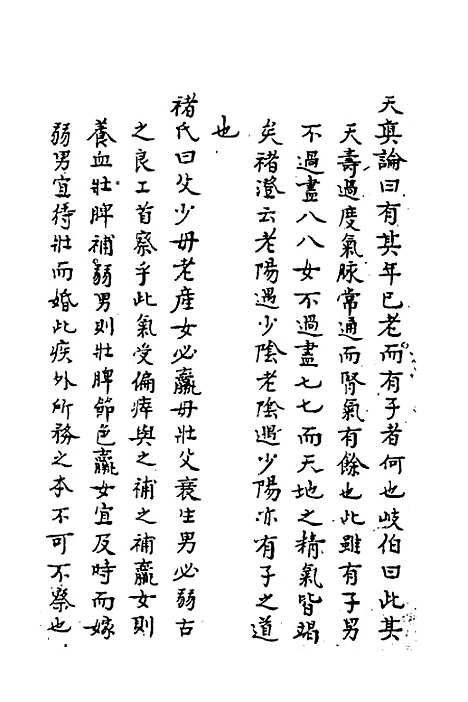 天真論曰有其年已老而有子者何也岐伯曰此其
天壽過度氣脉常通而腎氣有餘也此雖有子男
不過盡八八女不過盡七七而天地之精氣皆竭
矣褚澄云老陽遇少陰老陰遇少陽亦有子之道
也
褚氏曰父少母老產女必羸母壯父衰生男必弱古
之良工首察乎此氣受偏瘁與之補之補羸女則
養血壯脾補弱男則壯脾節色羸女宜及時而嫁
弱男宜待壯而婚此疾外所務之本不可不察也